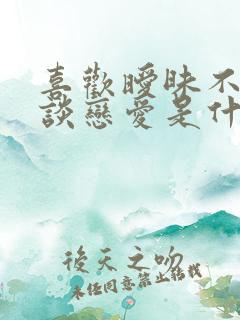 喜歡曖昧不
談戀愛是什
後天之吻
未任同意禁止转载